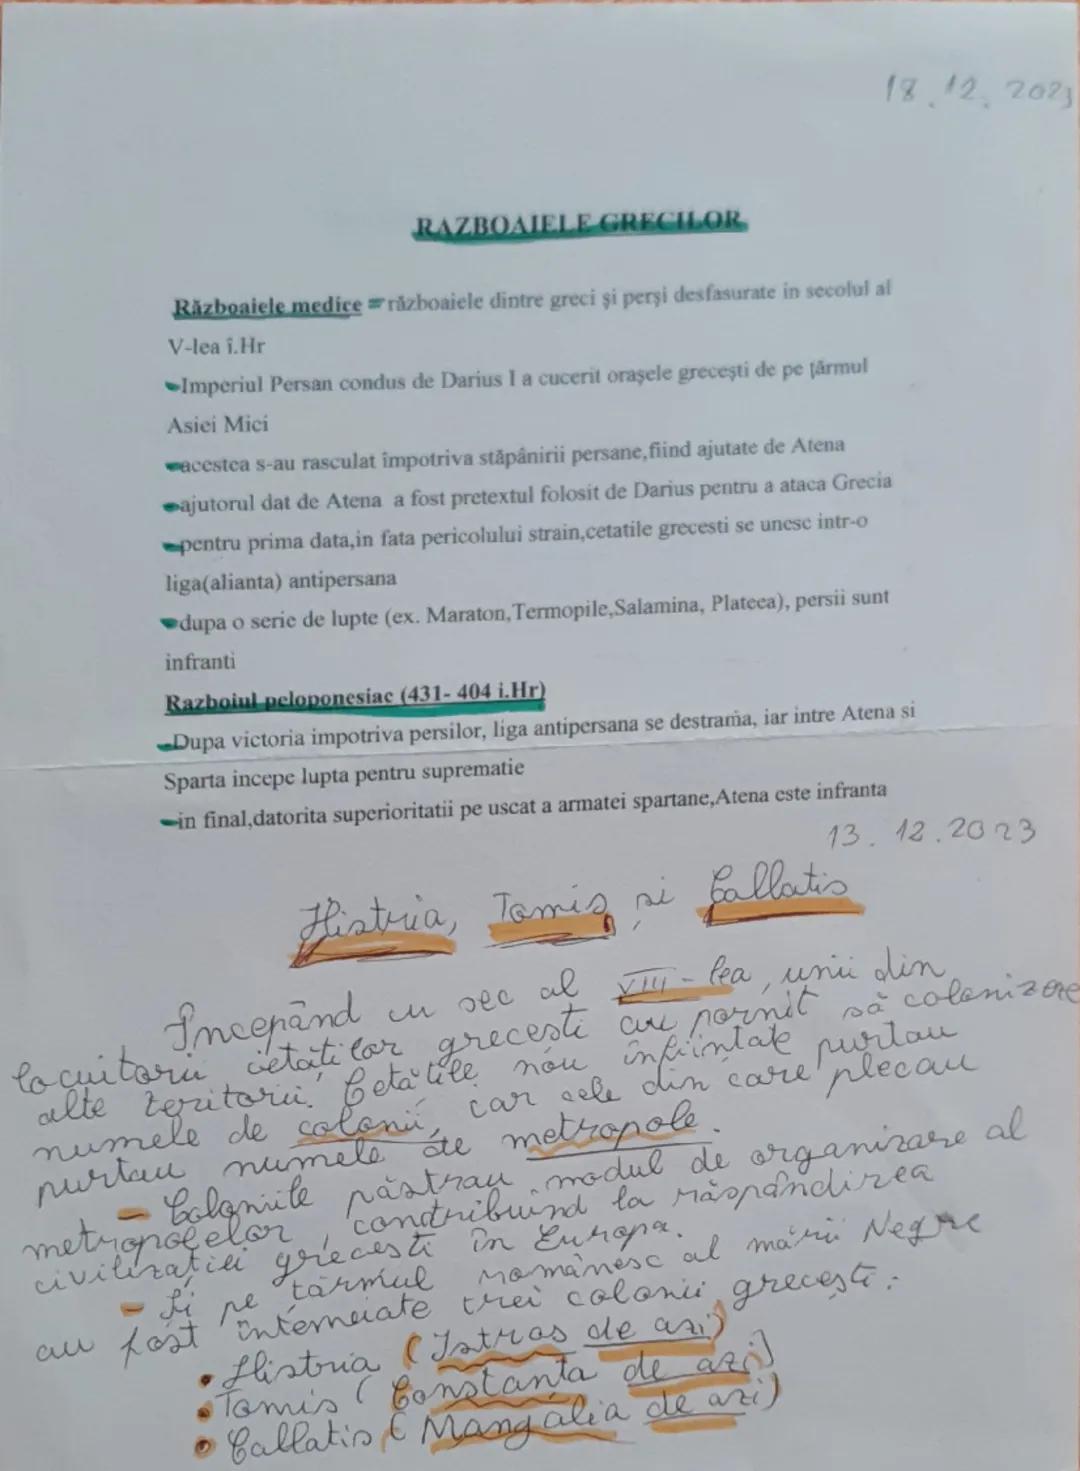 18.12.2023
RAZBOAIELE GRECILOR
Războaiele medice = războaiele dintre greci şi perşi desfasurate in secolul al
V-lea î.Hr
-Imperiul Persan condus de Darius I a cucerit oraşele greceşti de pe ţărmul
Asiei Mici
-acestea s-au rasculat împotriva stăpânirii persane,fiind ajutate de Atena
-ajutorul dat de Atena a fost pretextul folosit de Darius pentru a ataca Grecia
-pentru prima data,in fata pericolului strain,cetatile grecesti se unesc intr-o
liga(alianta) antipersana
-dupa o serie de lupte (ex. Maraton,Termopile,Salamina, Plateea), persii sunt
infranti
Razboiul peloponesiac (431- 404 i.Hr)
-Dupa victoria impotriva persilor, liga antipersana se destrama, iar intre Atena si
Sparta incepe lupta pentru suprematie
-in final,datorita superioritatii pe uscat a armatei spartane,Atena este infranta
13.12.2023
Histria, Tomis și Callatis
Începând cu sec al VIII-lea, unii din
locuitorii cetăților grecesti au pornit să colonizeze
alte teritorii. Cetățile nou înființate purtau
numele de colonii, iar cele din care plecau
purtau numele de metropole.
- Coloniile păstrau modul de organizare al
metropolelor, contribuind la răspândirea
civilizației grecesti în Europa.
- Și pe țărmul românesc al mării Negre
au fost întemeiate trei colonii grecești:
• Histria (Istros de azi)
• Tomis (Constanta de azi)
• Callatis (Mangalia de azi)